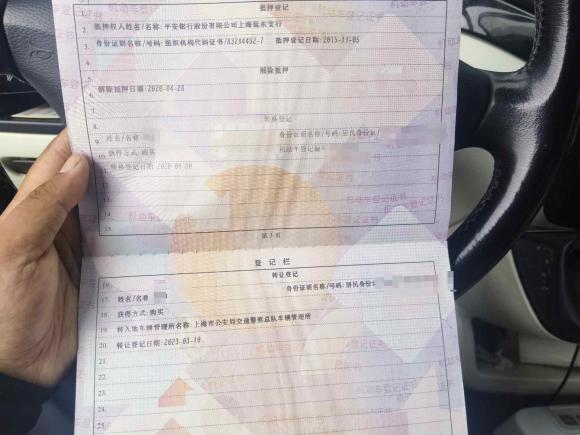 抵押登记
1.
2. 抵押权人姓名/名称:平安银行股份有限公司上海振东支行
3. 身份证明名称/号码:组织机构代码证书/83284492-7 抵押登记日期:2015-11-05
4.
5.
解除抵押
解除抵押日期:2020-04-28
7
8.
转移登记
9. 姓名/名称 身份证明名称/号码:居民身份证/
10. 获得方式:购买 机动车登记编号
11 转移登记日期:2020-04-30
12
13.
14.
15.
第3页
登记栏
16. 转让登记
17. 姓名/名称 身份证明名称/号码:居民身份证
18. 获得方式:购买
19. 转入地车辆管理所名称:上海市公安局交通警察总队车辆管理所
20. 转让登记日期:2023-03-10
21.
22.
23.
24.
25.
机动车登记证书